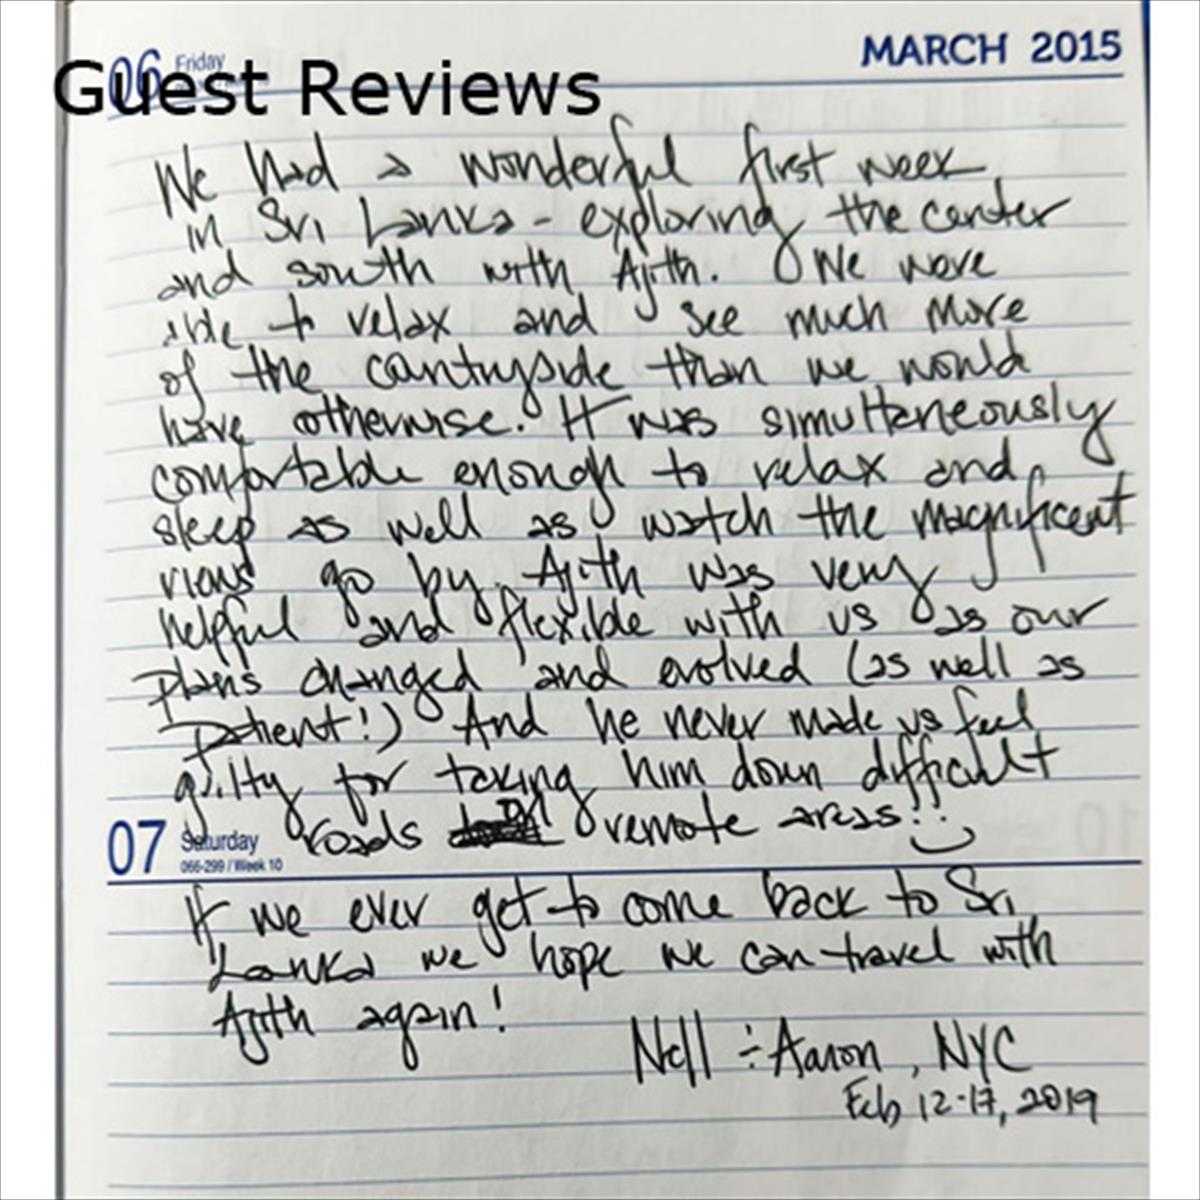 MARCH 2015
06 Friday
Guest Reviews
We had a wonderful first week
in Sri Lanka - exploring the center
and south with Ajith. We were
able to relax and see much more
of the countryside than we would
have otherwise. It was simultaneously
comfortable enough to relax and
sleep as well as watch the magnificent
views go by. Ajith was very
helpful and flexible with us as our
plans changed and evolved (as well as
patient!) And he never made us feel
guilty for taking him down difficult
roads or remote areas!!
07 Saturday
066-299 / Week 10
If we ever get to come back to Sri
Lanka we hope we can travel with
Ajith again!
Nell + Aaron, NYC
Feb 12-17, 2019